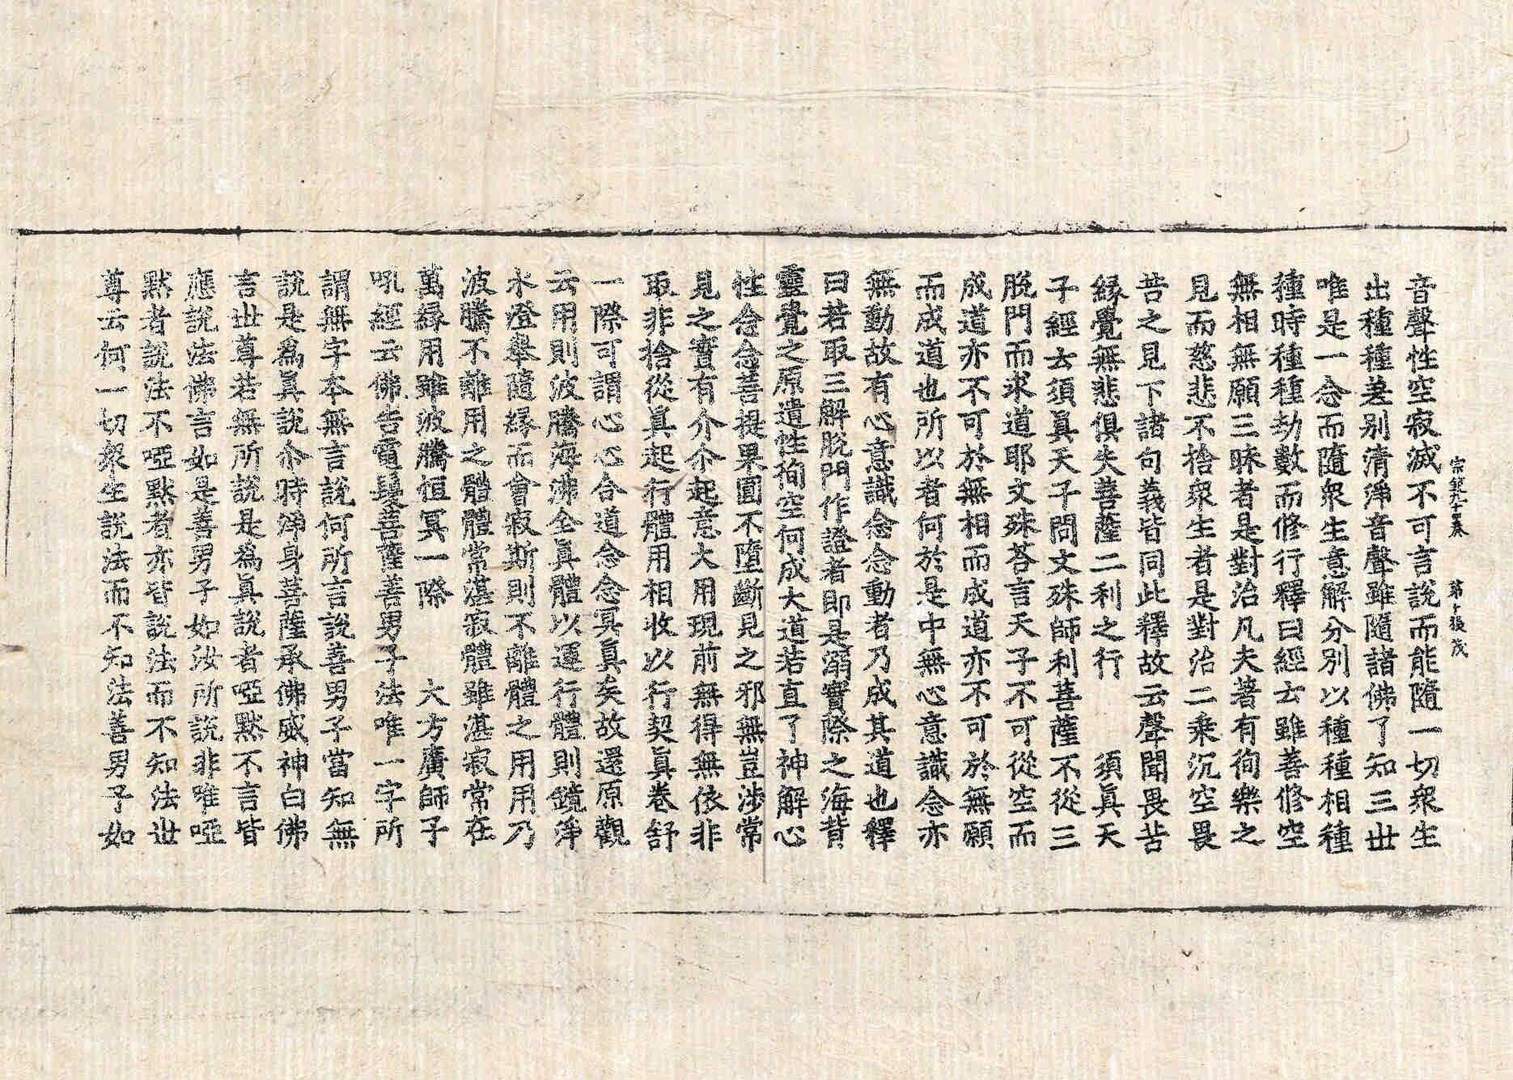 音聲性空寂滅不可言說而能隨一切衆生
宗鏡九十四卷　第十張　茂
出種種差別清淨音聲雖隨諸佛了知三世
唯是一念而隨衆生意解分別以種種相種
種時種種劫數而修行釋曰經云雖善修空
無相無願三昧者是對治凡夫著有徇樂之
見而慈悲不捨衆生者是對治二乘沉空畏
苦之見下諸句義皆同此釋故云聲聞畏苦
緣覺無悲俱失菩薩二利之行　須眞天
子經云須眞天子問文殊師利菩薩不從三
脫門而求道耶文殊荅言天子不可從空而
成道亦不可於無相而成道亦不可於無願
而成道也所以者何於是中無心意識念亦
無動故有心意識念念動者乃成其道也釋
曰若取三解脫門作證者即是溺實際之海背
靈覺之原遺性徇空何成大道若直了神解心
性念念菩提果圓不墮斷見之邪無豈涉常
見之實有介介起意大用現前無得無依非
取非捨從眞起行體用相收以行契眞卷舒
一際可謂心心合道念念冥眞矣故還原觀
云用則波騰海沸全眞體以運行體則鏡淨
水澄擧隨緣而會寂斯則不離體之用用乃
波騰不離用之體體常湛寂體雖湛寂常在
萬緣用雖波騰恒冥一際　大方廣師子
吼經云佛告電鬘菩薩善男子法唯一字所
謂無字本無言說何所言說善男子當知無
說是爲眞說尒時淨身菩薩承佛威神白佛
言世尊若無所說是爲眞說者啞默不言皆
應說法佛言如是善男子如汝所說非唯啞
默者說法不啞默者亦皆說法而不知法世
尊云何一切衆生說法而不知法善男子如